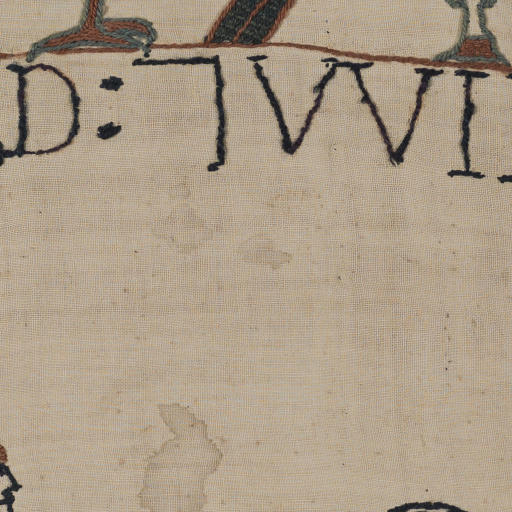 D: ⁊ VVI